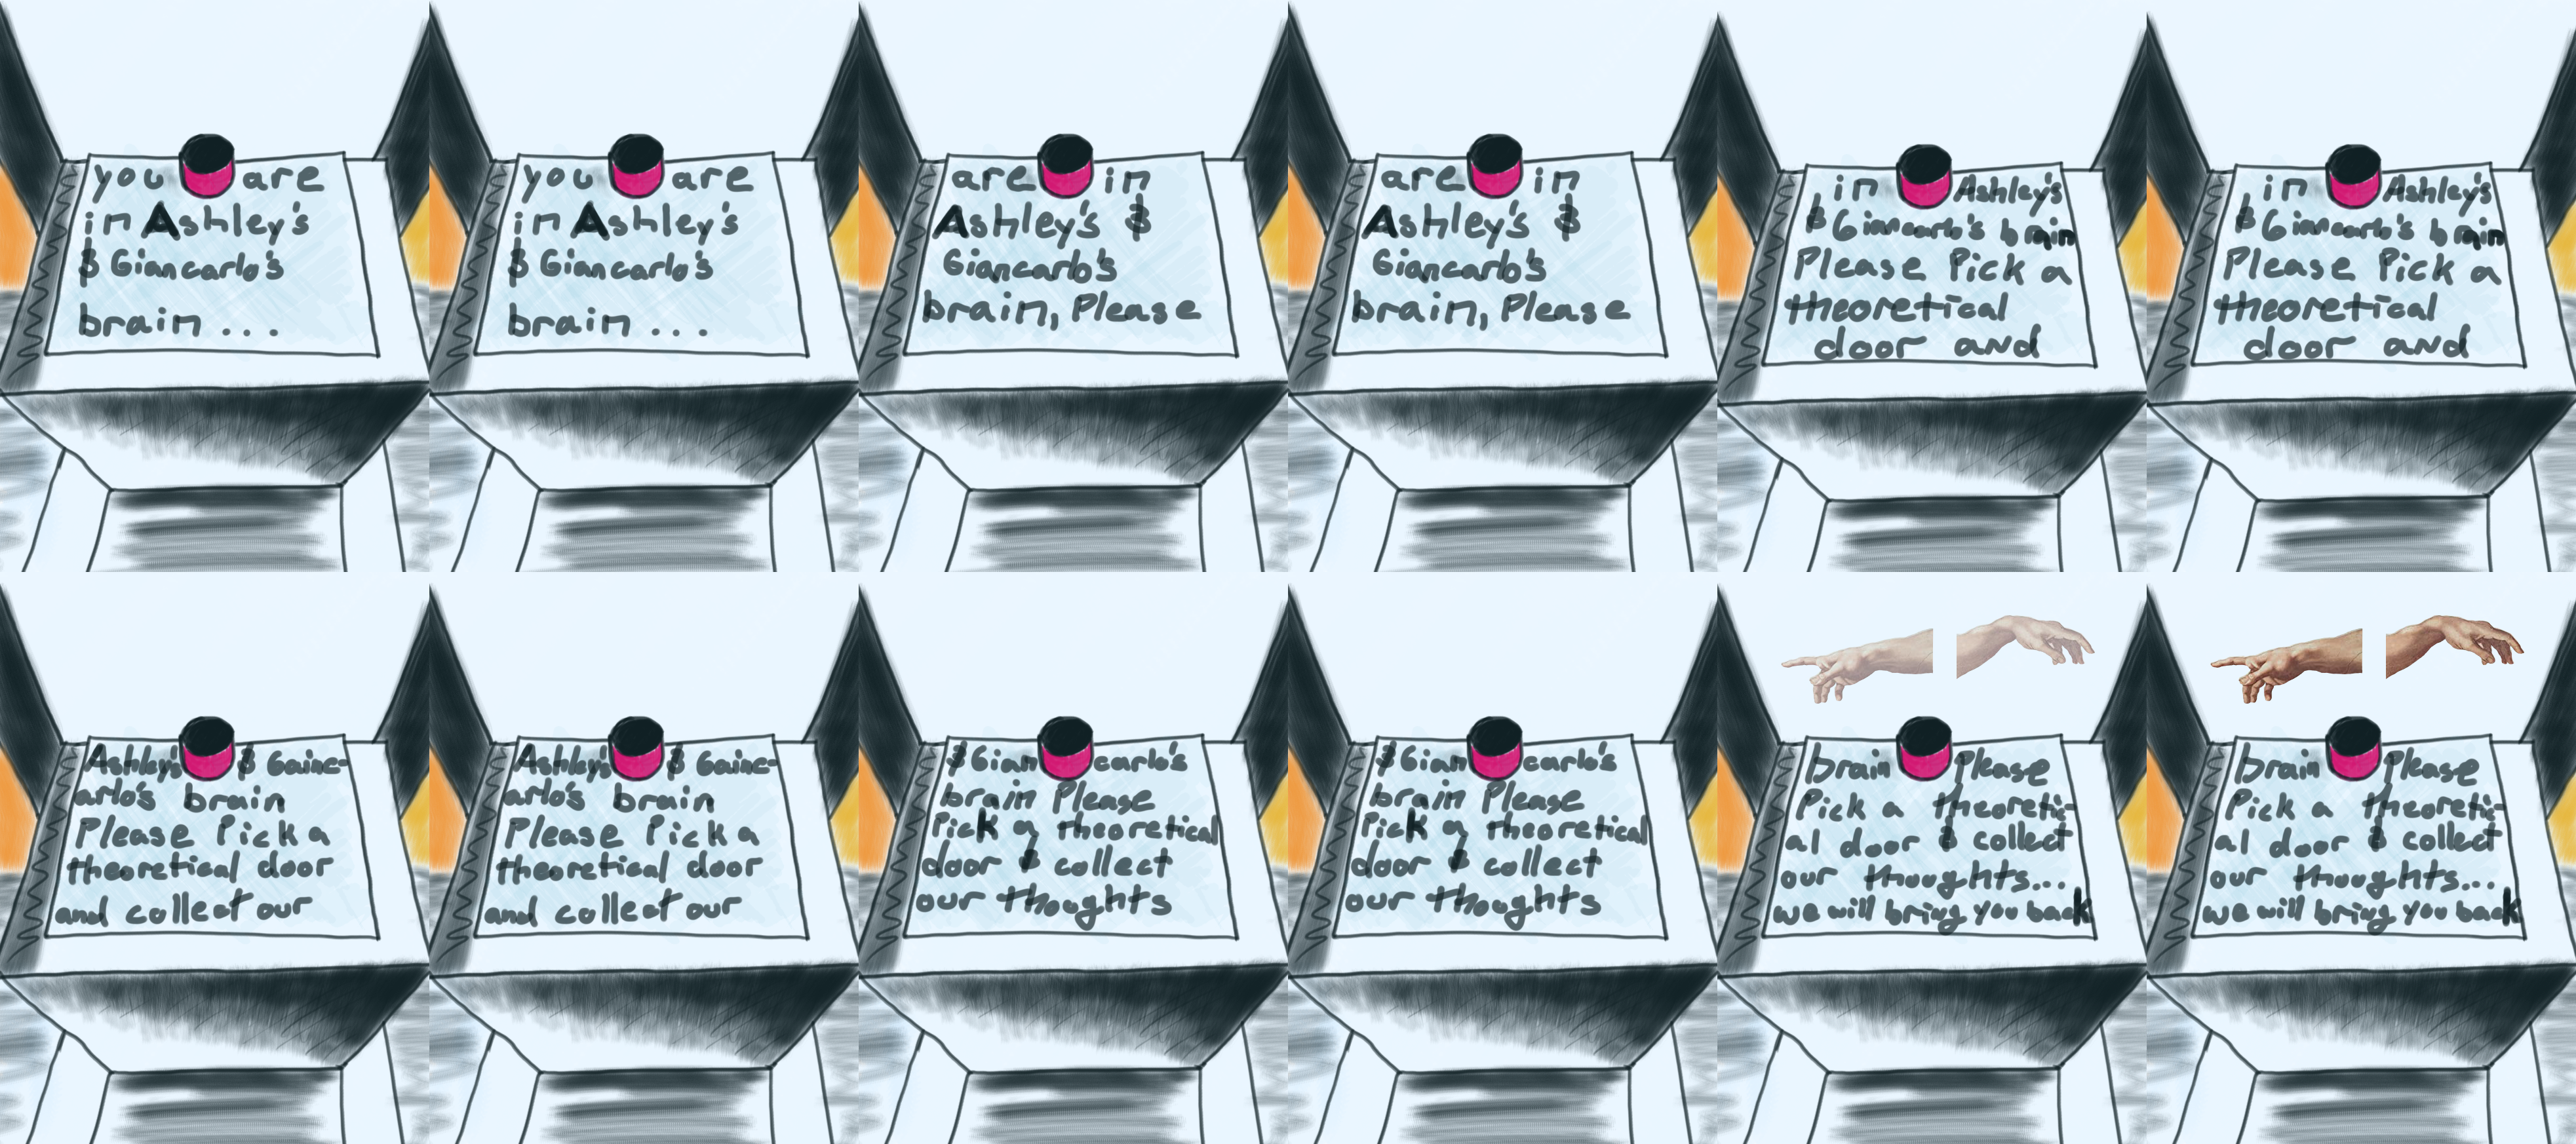 you are
in Ashley's
& Giancarlo's
brain ...
you are
in Ashley's
& Giancarlo's
brain ...
are in
Ashley's &
Giancarlo's
brain, Please
are in
Ashley's &
Giancarlo's
brain, Please
in Ashley's
& Giancarlo's brain
Please Pick a
theoretical
door and
in Ashley's
& Giancarlo's brain
Please Pick a
theoretical
door and
Ashley's & Gainc-
arlo's brain
Please Pick a
theoretical door
and collect our
Ashley's & Gainc-
arlo's brain
Please Pick a
theoretical door
and collect our
& Giancarlo's
brain Please
Pick a theoretical
door & collect
our thoughts
& Giancarlo's
brain Please
Pick a theoretical
door & collect
our thoughts
brain Please
Pick a theoretic-
al door & collect
our thoughts...
we will bring you back
brain Please
Pick a theoretic-
al door & collect
our thoughts...
we will bring you back